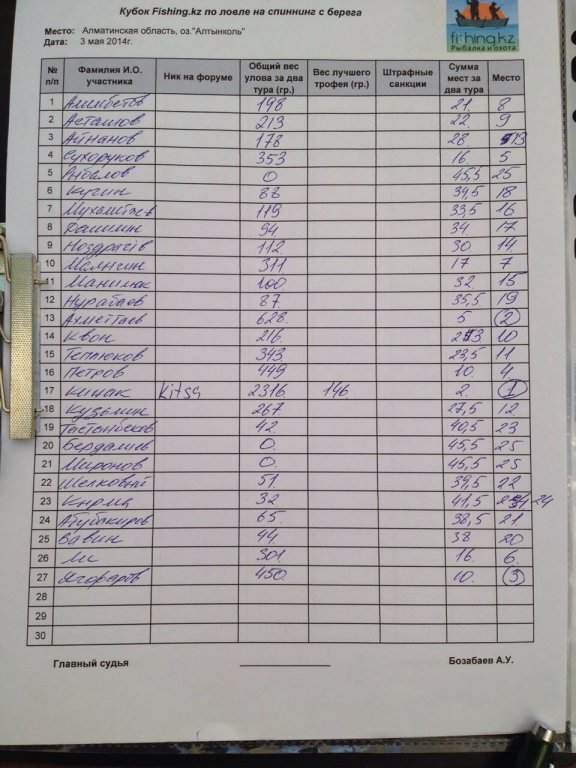 Кубок Fishing.kz по ловле на спиннинг с берега
fishing.kz
Рыбалка и охота
Место: Алматинская область, оз."Алтынколь"
Дата: 3 мая 2014г.
№ п/п Фамилия И.О. участника Ник на форуме Общий вес улова за два тура (гр.) Вес лучшего трофея (гр.) Штрафные санкции Сумма мест за два тура Место
1 198 21. 8
2 Асташов 213 22 9
3 Айнанов 178 28 13
4 Сухоруков 353 16 5
5 Рыбалов 0 45,5 25
6 Кугин 88 34,5 18
7 119 33,5 16
8 94 34 17
9 Ноздрачёв 112 30 14
10 311 17 7
11 100 32 15
12 Нурабаев 87 35,5 19
13 Ахметтаев 628 5 2
14 Квон 216 23 10
15 Теплюков 343 23,5 11
16 Петров 449 10 4
17 Кишак Kitsa 2316 146 2. 1
18 Кузьмин 267 27,5 12
19 42 40,5 23
20 Бердалиев 0. 45,5 25
21 Миронов 0. 45,5 25
22 Шелковый 51. 39,5 22
23 32 41,5 24
24 Абубакиров 65. 38,5 21
25 Бавин 44. 38 20
26 Ли 301 16. 6.
27 450 10. 3
28
29
30
Главный судья Бозабаев А.У.